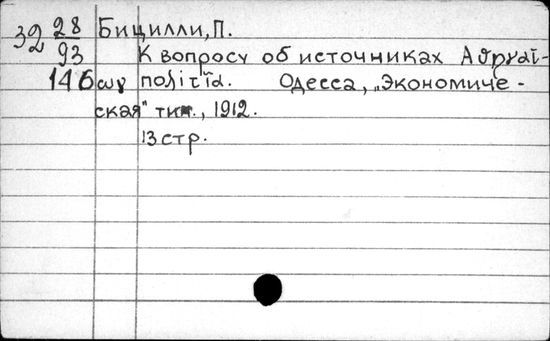 32 28/93 Бицилли, П.
К вопросу об источниках Ἀθηναί-
146 ων πολιτεία. Одесса, „Экономиче-
ская" тип., 1912.
13 стр.